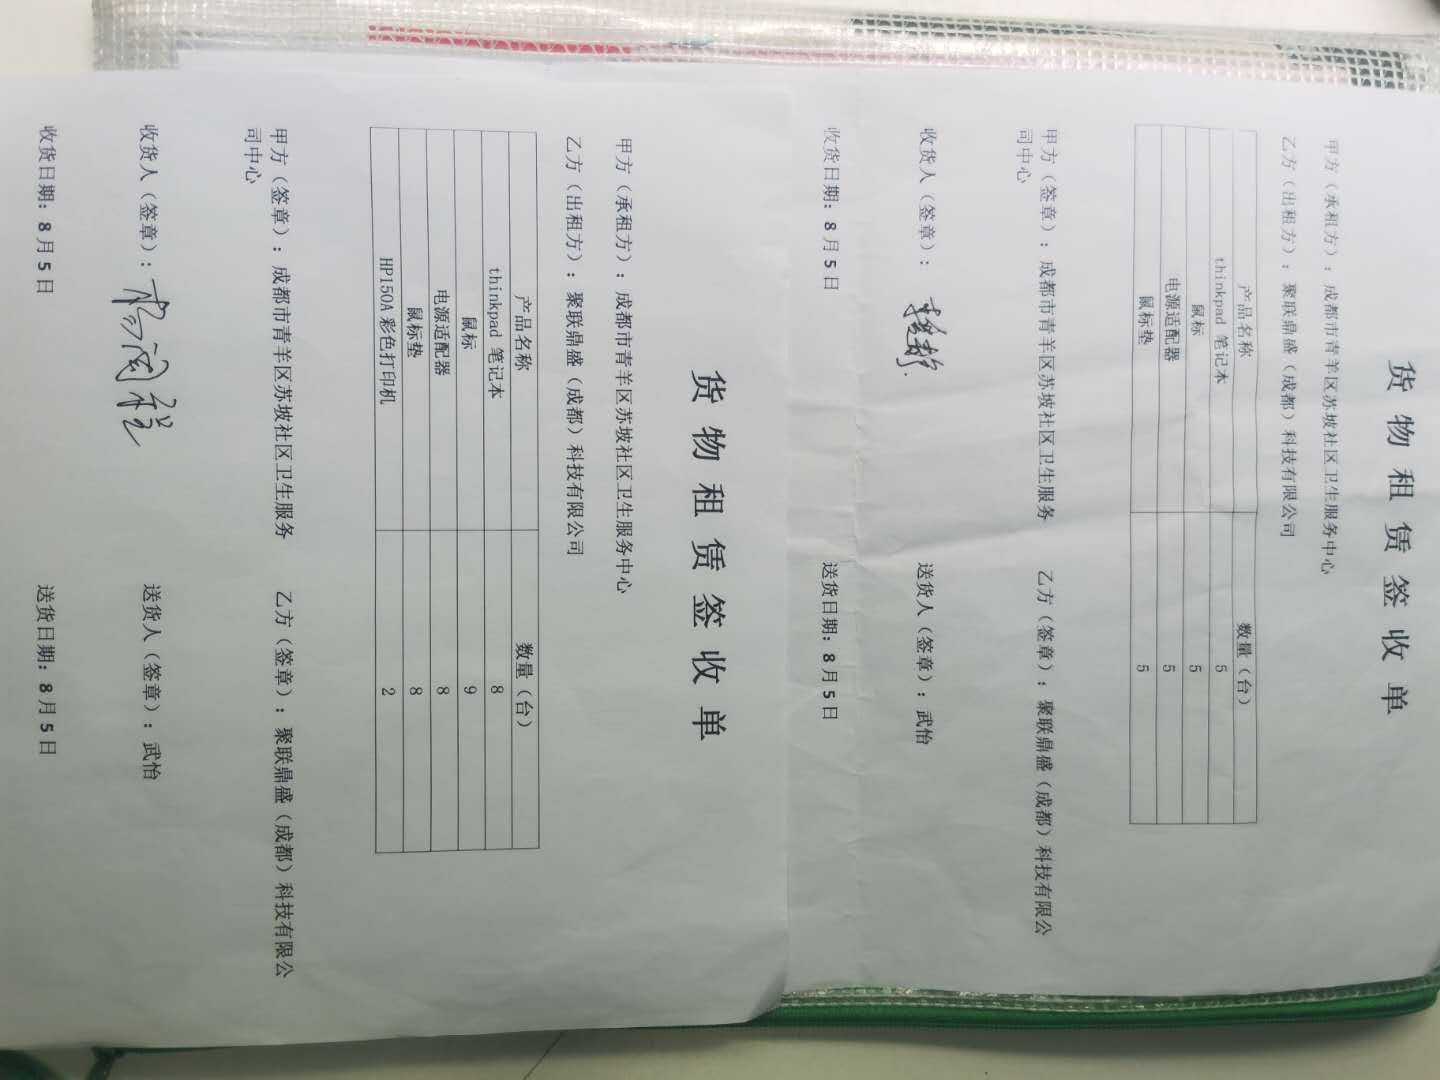 货物租赁签收单
甲方（承租方）：成都市青羊区苏坡社区卫生服务中心
乙方（出租方）：聚联鼎盛（成都）科技有限公司
产品名称 数量（台）
thinkpad 笔记本 5
鼠标 5
电源适配器 5
鼠标垫 5
甲方（签章）：成都市青羊区苏坡社区卫生服务 乙方（签章）：聚联鼎盛（成都）科技有限公
司中心
收货人（签章）： 送货人（签章）：武怡
收货日期：8月5日 送货日期：8月5日
货物租赁签收单
甲方（承租方）：成都市青羊区苏坡社区卫生服务中心
乙方（出租方）：聚联鼎盛（成都）科技有限公司
产品名称 数量（台）
thinkpad 笔记本 8
鼠标 9
电源适配器 8
鼠标垫 8
HP150A 彩色打印机 2
甲方（签章）：成都市青羊区苏坡社区卫生服务 乙方（签章）：聚联鼎盛（成都）科技有限公
司中心
收货人（签章）： 送货人（签章）：武怡
收货日期：8月5日 送货日期：8月5日